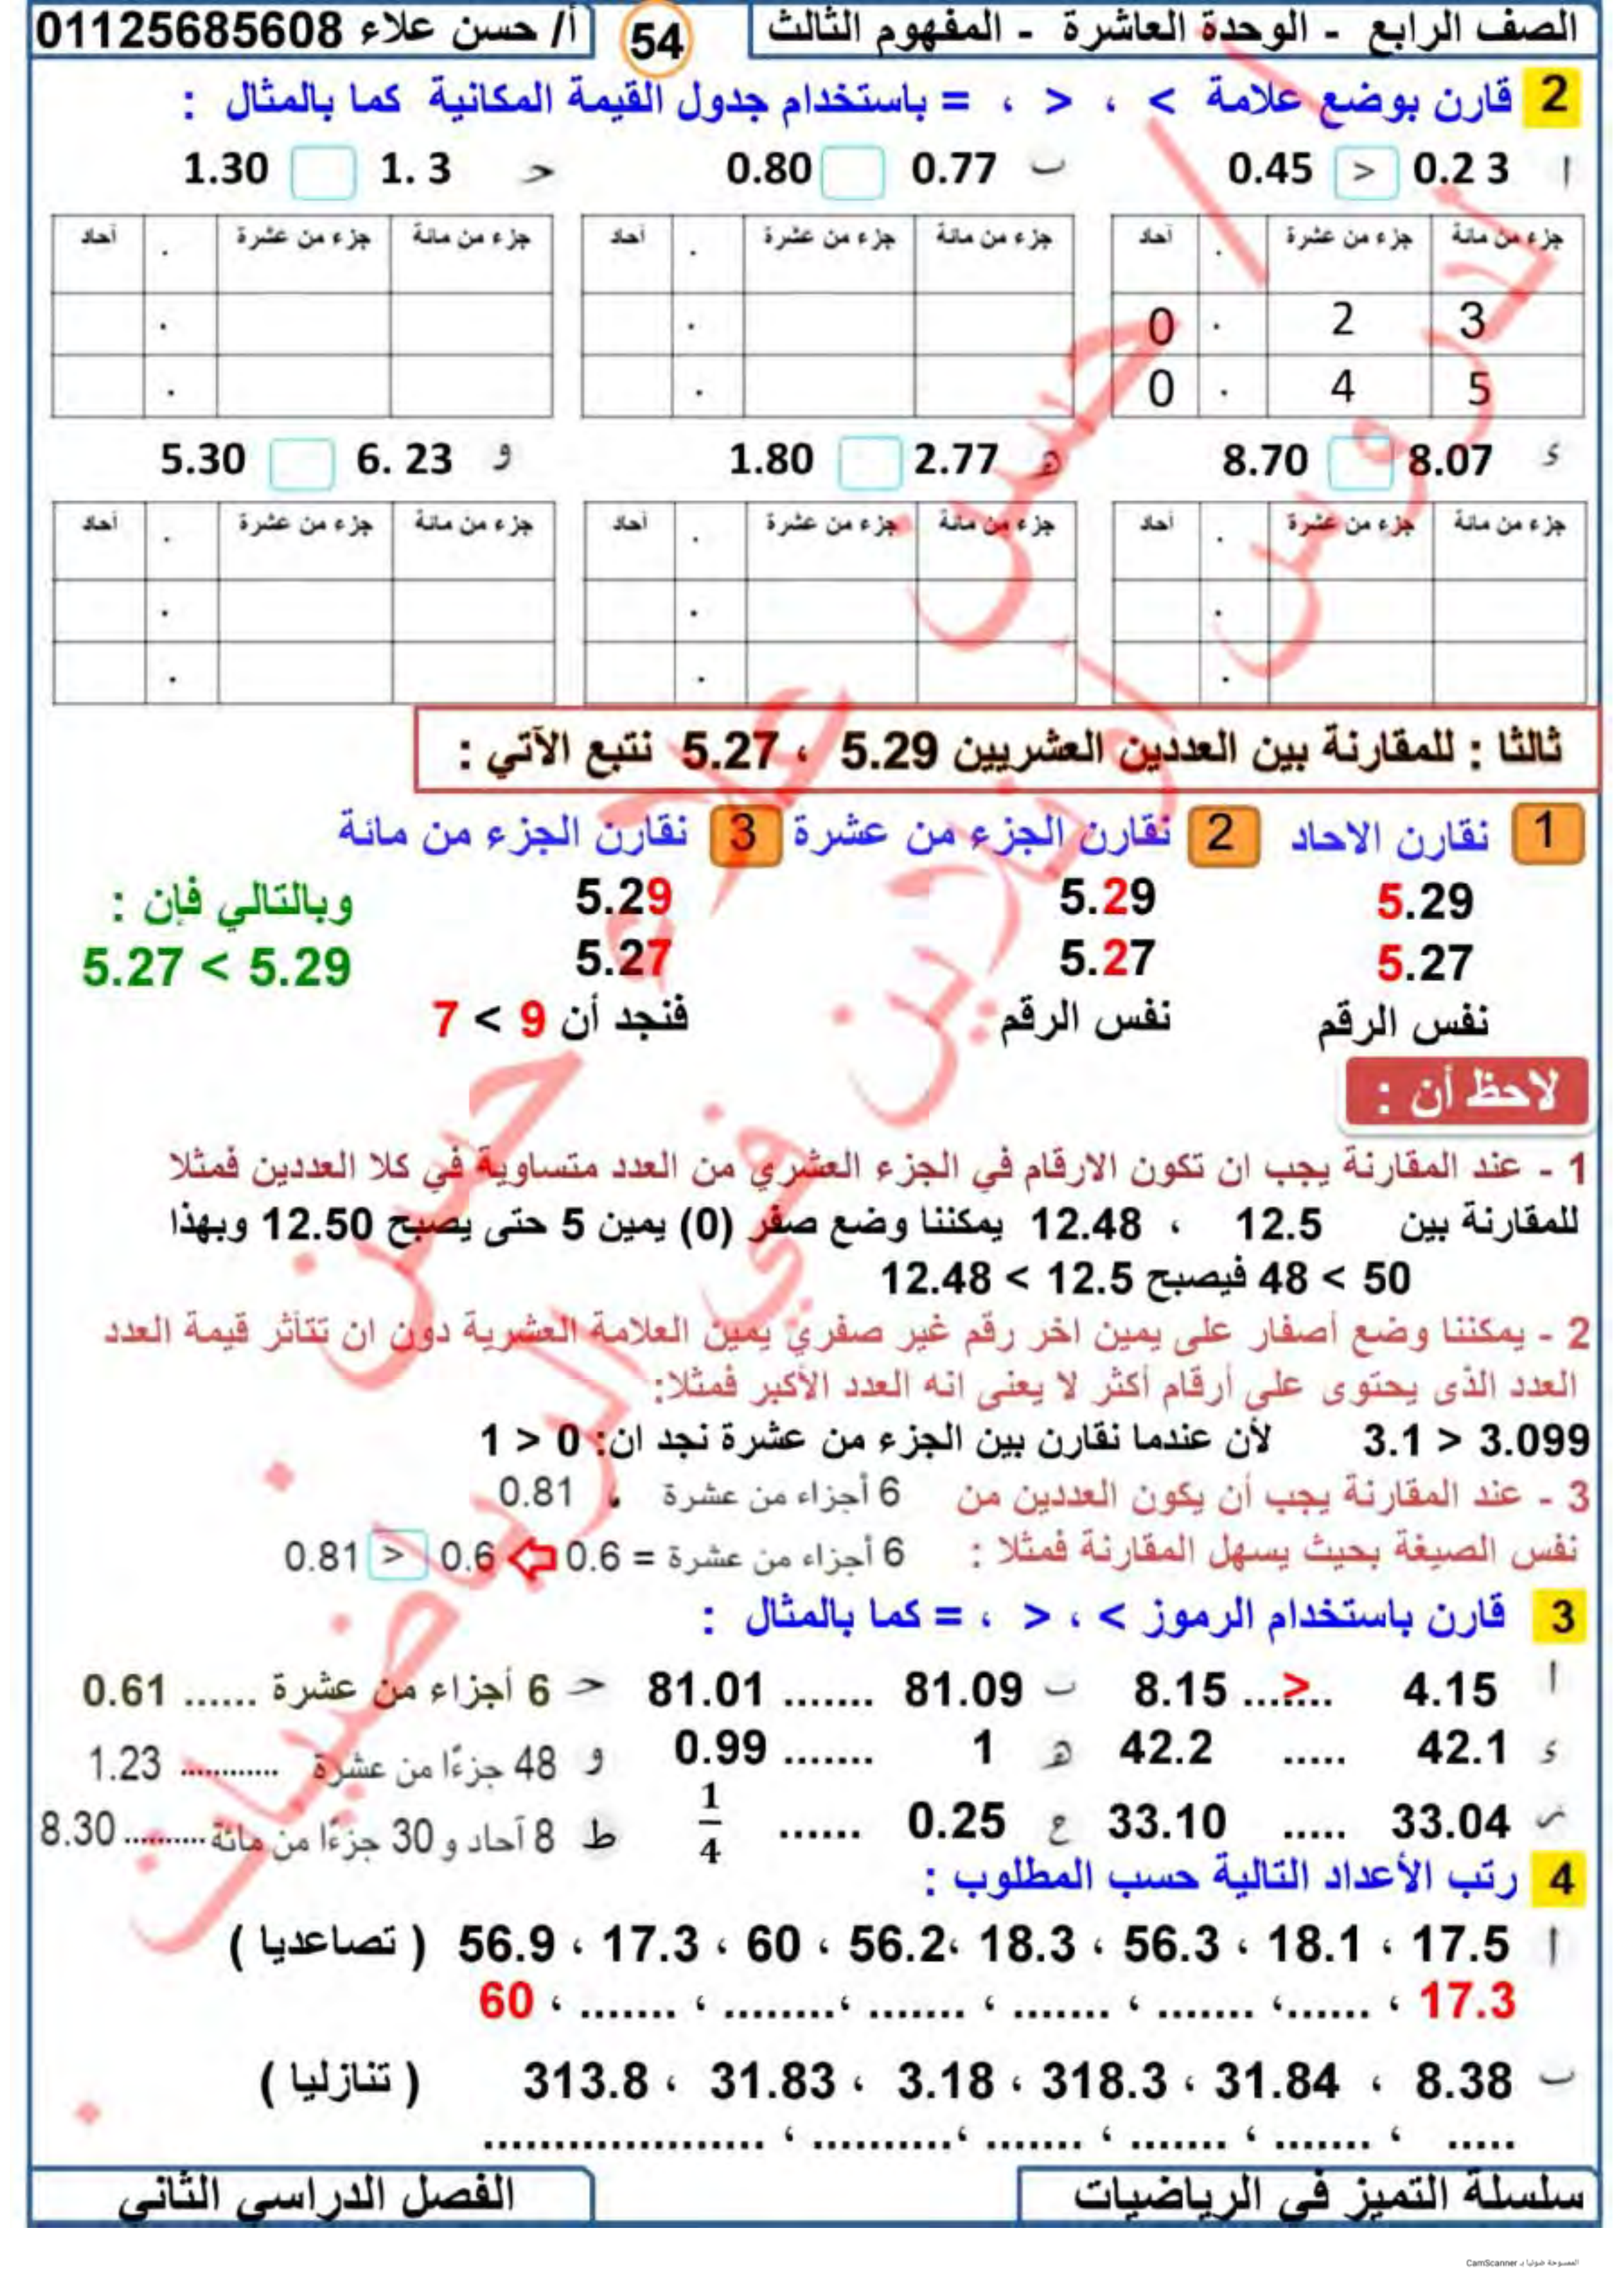 الصف الرابع - الوحدة العاشرة - المفهوم الثالث 54 أ/ حسن علاء 01125685608
2 قارن بوضع علامة > ، < ، = باستخدام جدول القيمة المكانية كما بالمثال :
أ 0.2 3 < 0.45 ب 0.77 0.80 حـ 1. 3 1.30
جزء من مائة جزء من عشرة . أحاد جزء من مائة جزء من عشرة . أحاد جزء من مائة جزء من عشرة . أحاد
3 2 . 0 . .
5 4 . 0 . .
ء 8.07 8.70 هـ 2.77 1.80 و 6. 23 5.30
جزء من مائة جزء من عشرة . أحاد جزء من مائة جزء من عشرة . أحاد جزء من مائة جزء من عشرة . أحاد
. . .
. . .
ثالثا : للمقارنة بين العددين العشريين 5.29 ، 5.27 نتبع الآتي :
1 نقارن الاحاد 2 نقارن الجزء من عشرة 3 نقارن الجزء من مائة
5.29 5.29 5.29 وبالتالي فإن :
5.27 5.27 5.27 5.27 < 5.29
نفس الرقم نفس الرقم فنجد أن 9 > 7
لاحظ أن :
1 - عند المقارنة يجب ان تكون الارقام في الجزء العشري من العدد متساوية في كلا العددين فمثلا
للمقارنة بين 12.5 ، 12.48 يمكننا وضع صفر (0) يمين 5 حتى يصبح 12.50 وبهذا
50 > 48 فيصبح 12.5 > 12.48
2 - يمكننا وضع أصفار على يمين اخر رقم غير صفري يمين العلامة العشرية دون ان تتأثر قيمة العدد
العدد الذى يحتوى على أرقام أكثر لا يعنى انه العدد الأكبر فمثلا:
3.099 < 3.1 لأن عندما نقارن بين الجزء من عشرة نجد ان: 0 < 1
3 - عند المقارنة يجب أن يكون العددين من 6 أجزاء من عشرة ، 0.81
نفس الصيغة بحيث يسهل المقارنة فمثلا : 6 أجزاء من عشرة = 0.6 0.6 < 0.81
3 قارن باستخدام الرموز > ، < ، = كما بالمثال :
أ 4.15 ...<... 8.15 ب 81.09 ....... 81.01 حـ 6 أجزاء من عشرة ...... 0.61
ء 42.1 ..... 42.2 هـ 1 ....... 0.99 و 48 جزءًا من عشرة ............ 1.23
ز 33.04 ..... 33.10 ع 0.25 ...... 1/4 ط 8 آحاد و 30 جزءًا من مائة .......... 8.30
4 رتب الأعداد التالية حسب المطلوب :
أ 17.5 ، 18.1 ، 56.3 ، 18.3 ،56.2 ، 60 ، 17.3 ، 56.9 ( تصاعديا )
17.3 ، ......، ....... ، ....... ، ....... ،........ ، ....... ، 60
ب 8.38 ، 31.84 ، 318.3 ، 3.18 ، 31.83 ، 313.8 ( تنازليا )
..... ، ....... ، ....... ، ....... ،.......... ، ....................
سلسلة التميز في الرياضيات الفصل الدراسي الثاني
الممسوحة ضوئيا بـ CamScanner
أ / حسن علاء حسن
أ.دروس أونلاين في الرياضيات